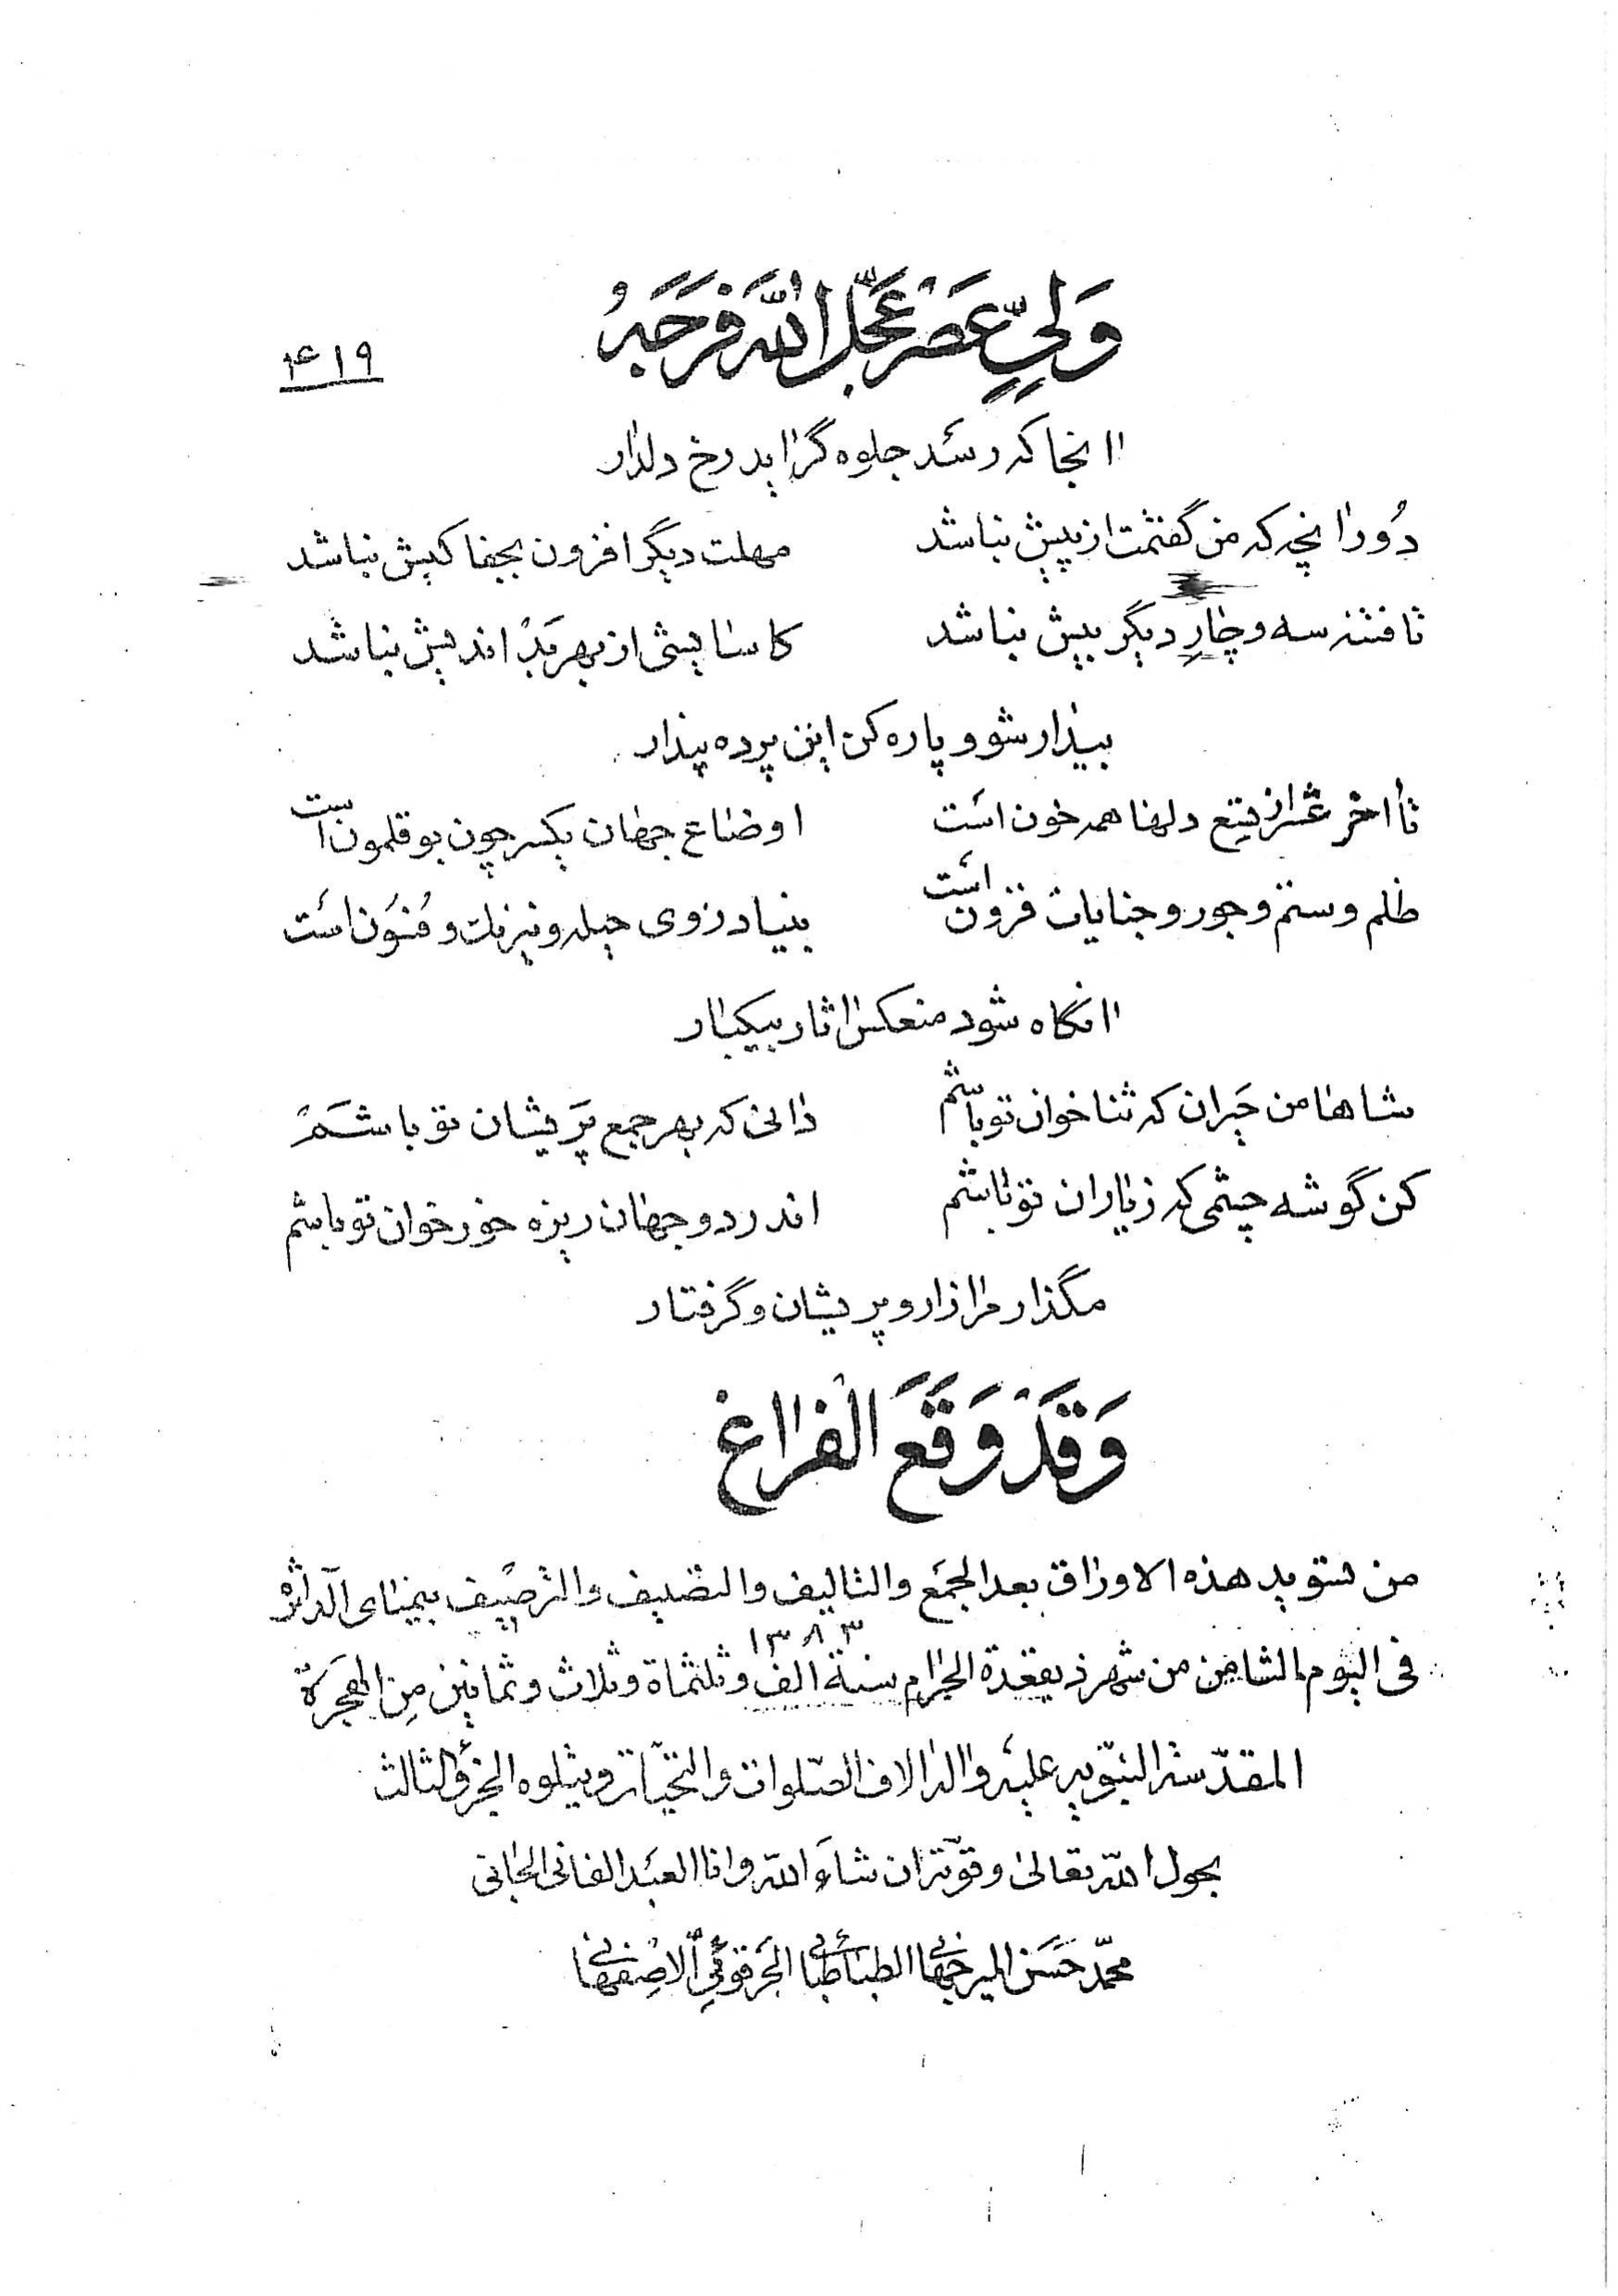 وَلِیِّ عَصْر عَجَّلَ اللّٰهُ فَرَجَهُ
۴۱۹
اانجا که رسد جلوه گر اید رخ دلدار
دُور انچه که من گفتمت از پیش نباشد    مهلت دیگر افزون بجفا کیش نباشد
تا فتنه سه و چار دیگر بیش نباشد    کاسایشی از بهر بَدْ اندیش نباشد
بیدار شو و پاره کن این پرده پندار
تا اخر دلها همه خون است    اوضاع جهان یکسر چون بوقلمون است
ظلم و ستم و جور و جنایات فزون است    بنیاد زوی حیله و نیرنك و فُسُون است
اانگاه شود منعکس اثار بیکبار
شاها من حیران که ثنا خوان تو باشم    دانی که بهر جمع پَریشان تو باشَم
کن گوشه چشمی که ز یاران تو باشم    اندر دو جهان ریزه خور خوان تو باشم
مگذار مرا زار و پریشان و گرفتار
وَقَدْ وَقَعَ الْفَرَاغ
من تسوید هذه الاوراق بعد الجمع والتالیف والتصنیف والترصیف بیمنای الداثرة
۱۳۸۳
فی الیوم الثامن من شهر ذیقعدة الحرام سنة الف وثلثماة وثلاث وثمانین مِنَ الهجرة
المقدّسة النبّویه علیه واله الاف الصّلوات والتحیّات ویتلوه الجزؤ الثالث
بحول الله تعالی وقوّته ان شاءَ الله وانا العبد الفانی الجانی
محمّد حَسَن المیرجهانی الطباطبائی الجرقوئی الاِصْفهانی